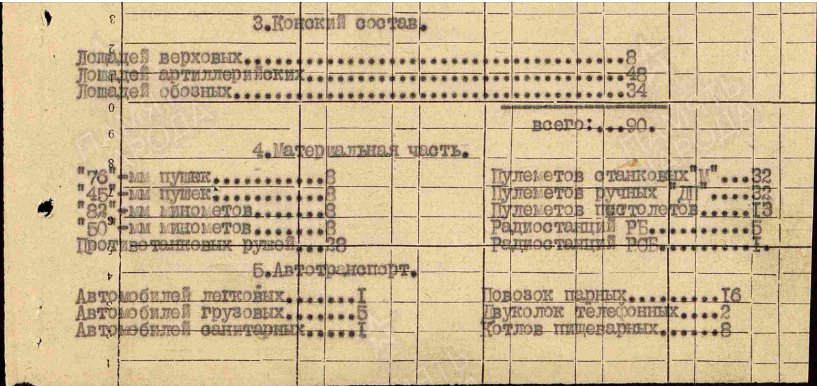 3.Конский состав.
Лошадей верховых...8
Лошадей артиллерийских...48
Лошадей обозных...34
всего:...90.
4.Материальная часть.
"76"-мм пушек...8
"45"-мм пушек...8
"82"-мм минометов...8
"50"-мм минометов...8
Противотанковых ружей...28
Пулеметов станковых"М"...32
Пулеметов ручных "ДП"...32
Пулеметов пистолетов...13
Радиостанций РБ...5
Радиостанций РСБ...1.
5.Автотранспорт.
Автомобилей легковых...1
Автомобилей грузовых...5
Автомобилей санитарных...1
Повозок парных...16
Двуколок телефонных...2
Котлов пищеварных...8